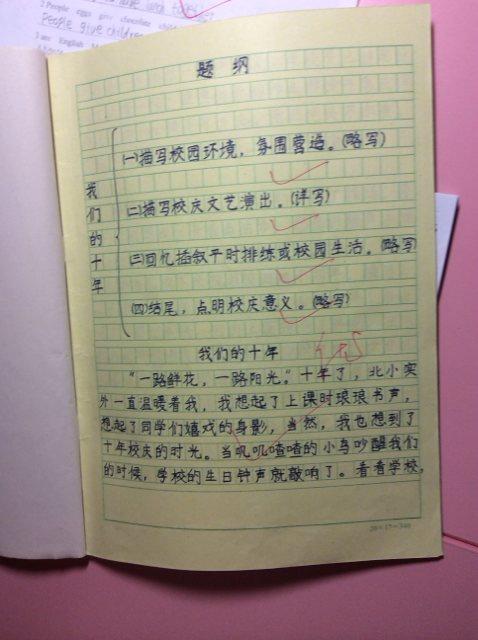 2 People eggs give chocolate
People give children
3 are English
题 纲
我们的十年
(一)描写校园环境，氛围营造。(略写)
(二)描写校庆文艺演出。(详写)
(三)回忆插叙平时排练或校园生活。(略写
(四)结尾，点明校庆意义。(略写)
我们的十年
“一路鲜花，一路阳光。”十年了，北小实
外一直温暖着我，我想起了上课时琅琅书声，
想起了同学们嬉戏的身影，当然，我也想到了
十年校庆的时光。当叽叽喳喳的小鸟吵醒我们
的时候，学校的生日钟声就敲响了。看看学校，
20×17=340